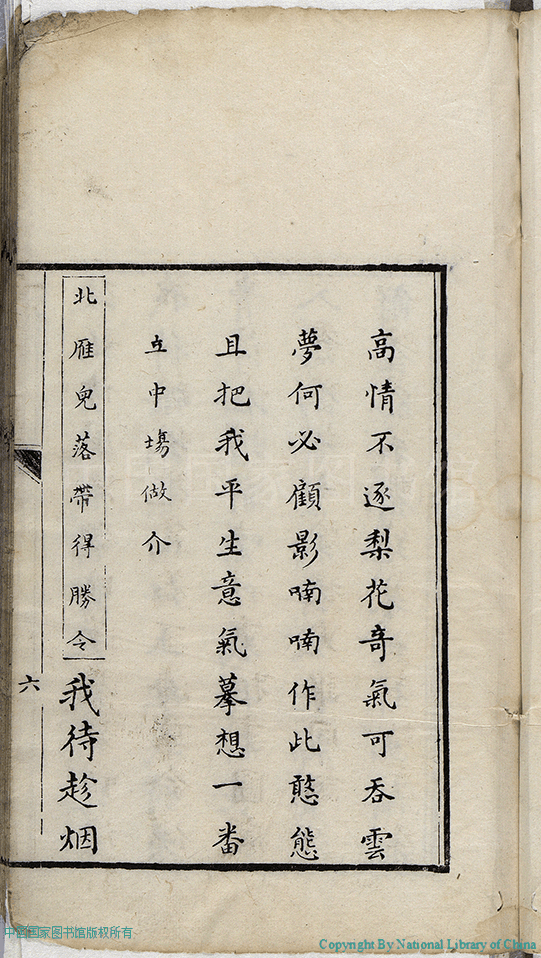 高情不逐梨花奇氣可吞雲
夢何必顧影喃喃作此憨態
且把我平生意氣摹想一番
立中塲做介
北雁兒落帶得勝令我待趁烟
六
中国国家图书馆版权所有
Copyright By National Library of China